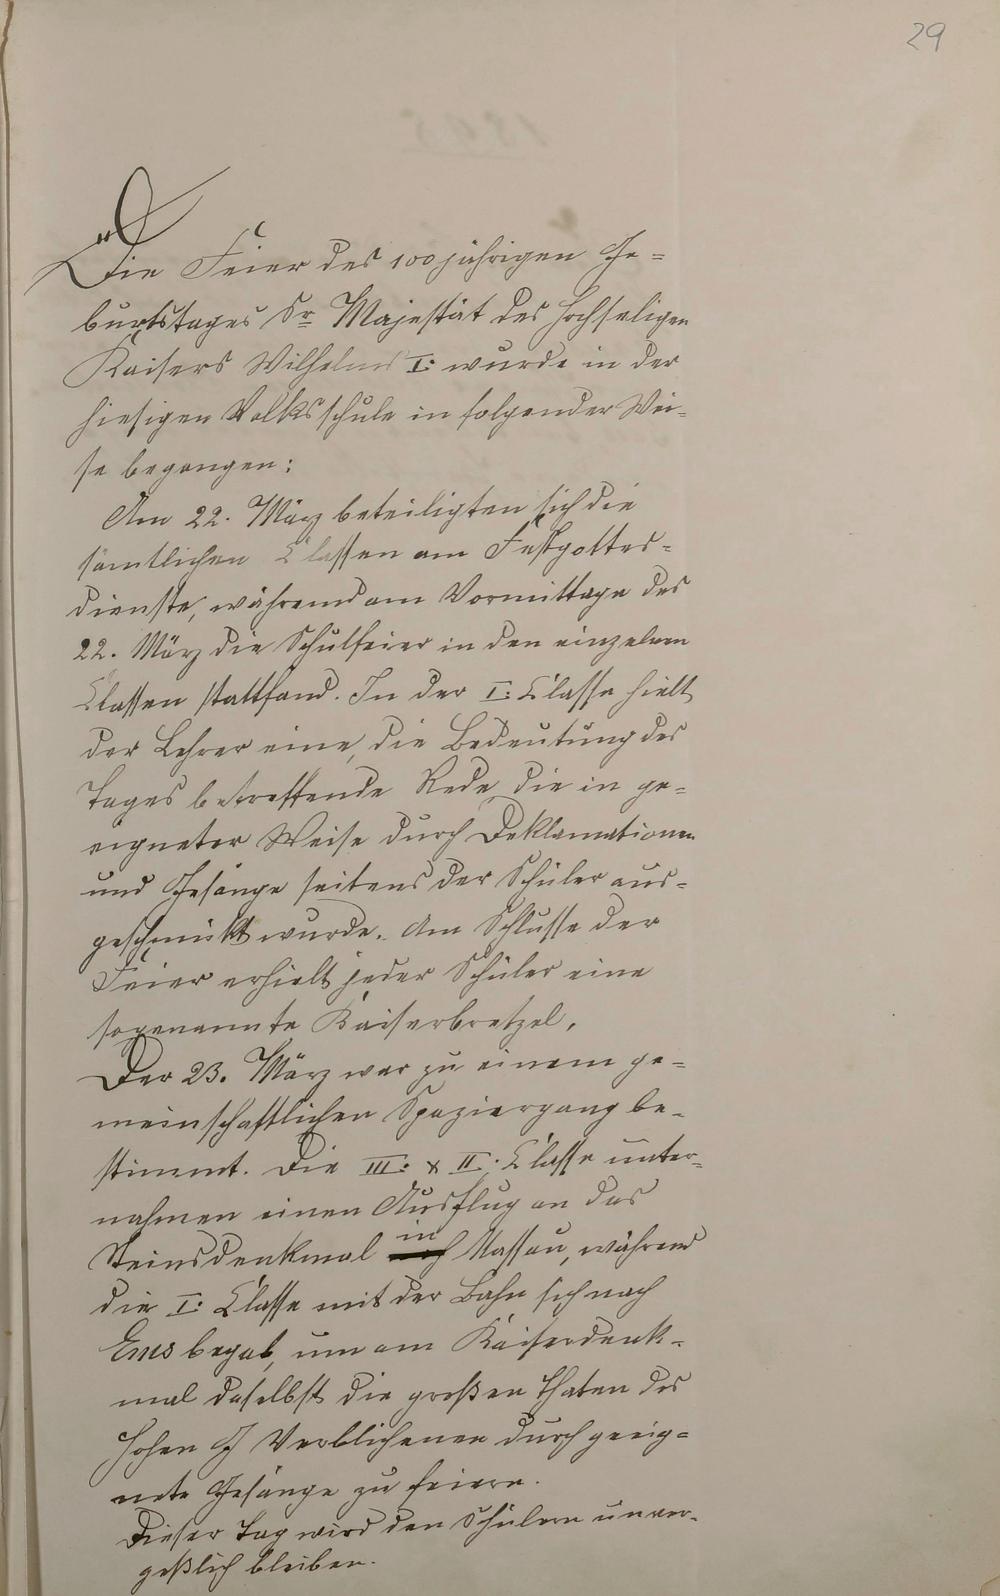 29
Die Feier des 100jährigen Ge-
burtstages Sr Majestät des hochseligen
Kaisers Wilhelms I. wurde in der
hiesigen Volksschule in folgender Wei-
se begangen:
Am 22. März beteiligten sich die
sämtlichen Classen am Festgottes-
dienste, während am Vormittage des
22. März die Schulfeier in den einzelnen
Classen stattfand. In der I. Classe hielt
der Lehrer eine, die Bedeutung des
Tages betreffende Rede, die in ge-
eigneter Weise durch Deklamationen
und Gesänge seitens der Schüler aus-
geschmükt wurde. Am Schlusse der
Feier erhielt jeder Schüler eine
sogenannte Kaiserbretzel.
Der 23. März war zu einem ge-
meinschaftlichen Spaziergang be-
stimmt. Die III. & II. Classe unter-
nahmen einen Ausflug an das
Steinsdenkmal in Nassau, während
die I. Classe mit der Bahn sich nach
Ems begab, um am Kaiserdenk-
mal daselbst die großen Thaten des
hohen Verblichenen durch geeig-
nete Gesänge zu feiern.
Dieser Tag wird den Schülern unver-
geßlich bleiben.